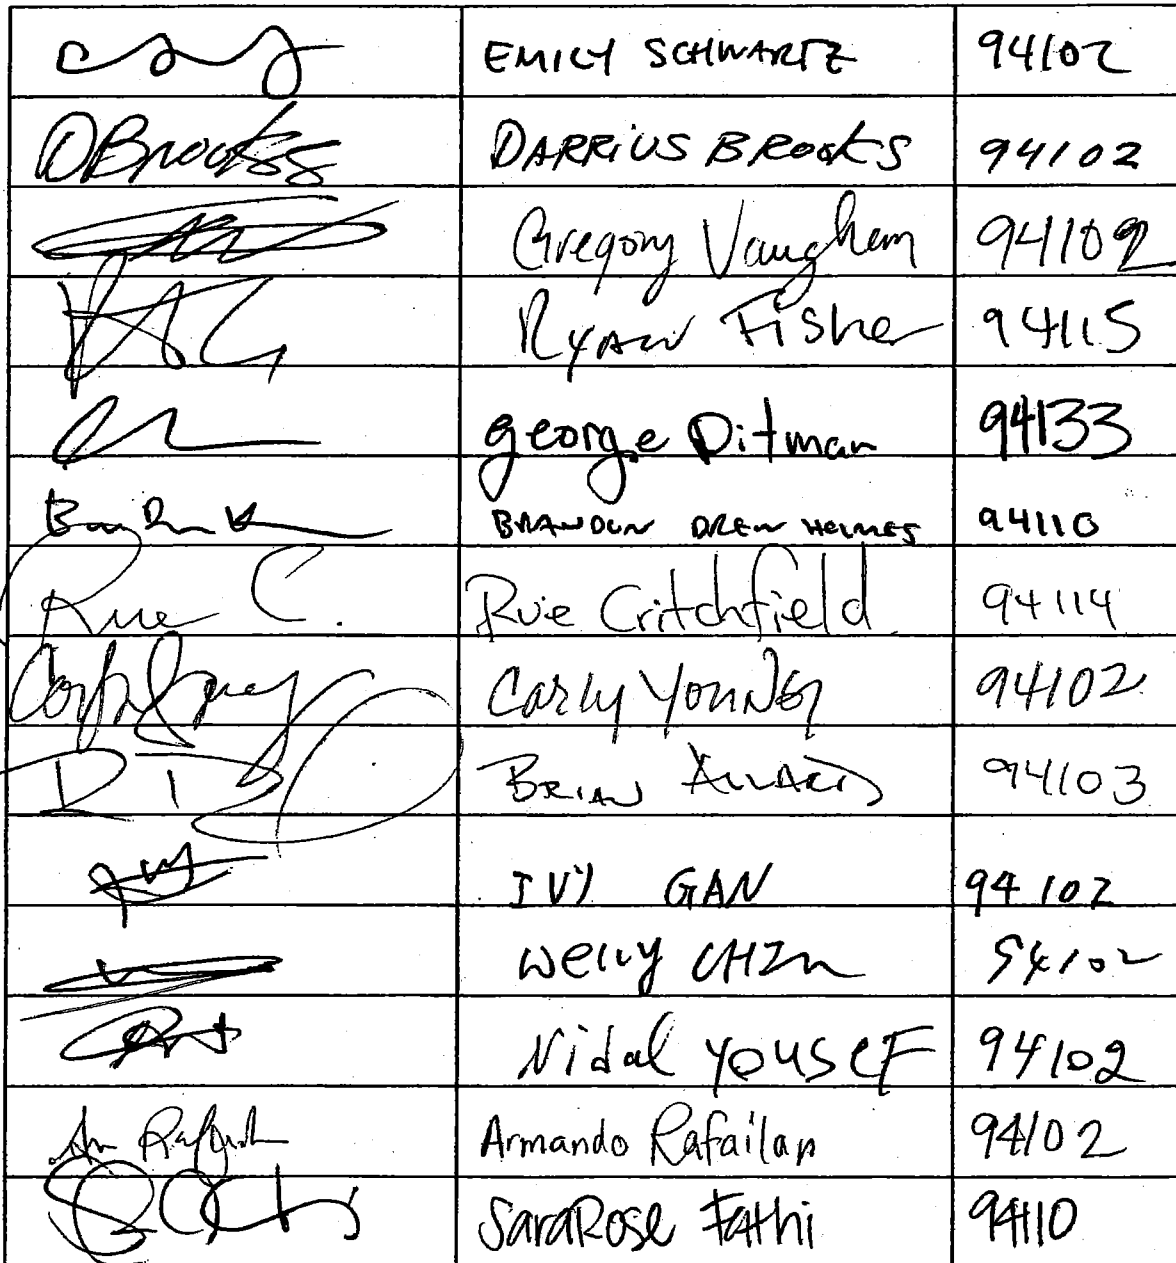 EMILY SCHWARTZ 94102
DBrookss DARRIUS BROOKS 94102
Gregory Vaughem 94102
RYAN Fisher 94115
george Ditman 94133
BRANDON DREW HOLMES 94110
Rue C. Rue Critchfield 94114
Carly YOUNG 94102
BRIAN 94103
IVY GAN 94102
Welly CHIn 94102
Nidal YOUSEF 94102
Armando Rafailan 94102
SaraRose Fathi 94110